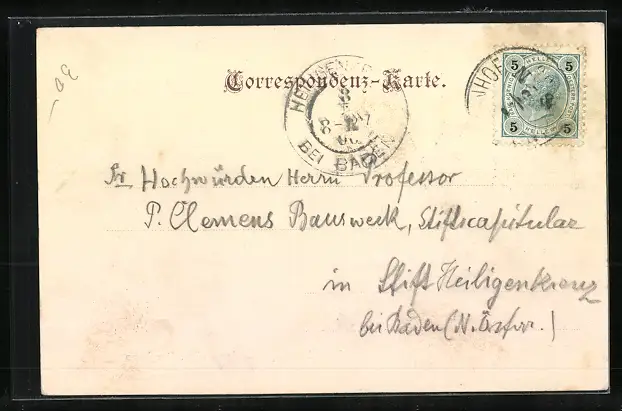 Correspondenz-Karte.
HEILIGENKREUZ
BEI BADEN
NHOF
5 HELLER 5
5 HELLER 5
Sr Hochwürden Herrn Professor
P. Clemens Bausweck, Stiftscapitular
in Stift Heiligenkreuz
bei Baden (N. Österr.)